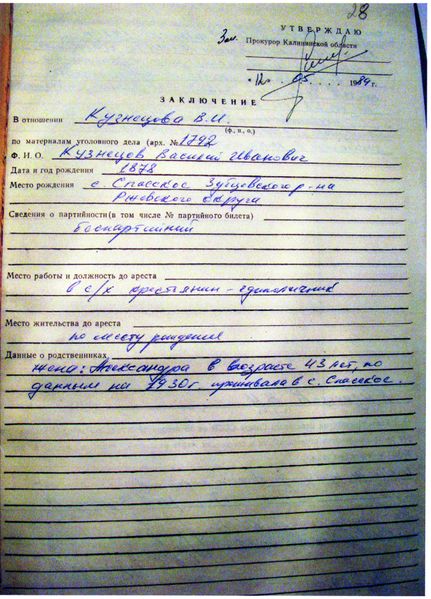 28
УТВЕРЖДАЮ
Зам. Прокурор Калининской области
"12" 05 1989г.
ЗАКЛЮЧЕНИЕ
В отношении Кузнецова В.И.
(ф., и., о.)
по материалам уголовного дела (арх. № 1792
Ф. И. О. Кузнецов Василий Иванович
Дата и год рождения 1878
Место рождения с. Спасское Зубцовского р-на
Ржевского округа
Сведения о партийности (в том числе № партийного билета)
беспартийный
Место работы и должность до ареста
в с/х крестьянин-единоличник
Место жительства до ареста
по месту рождения
Данные о родственниках
жена: Александра в возрасте 43 лет, по
данным на 1930г. проживала в с. Спасское.